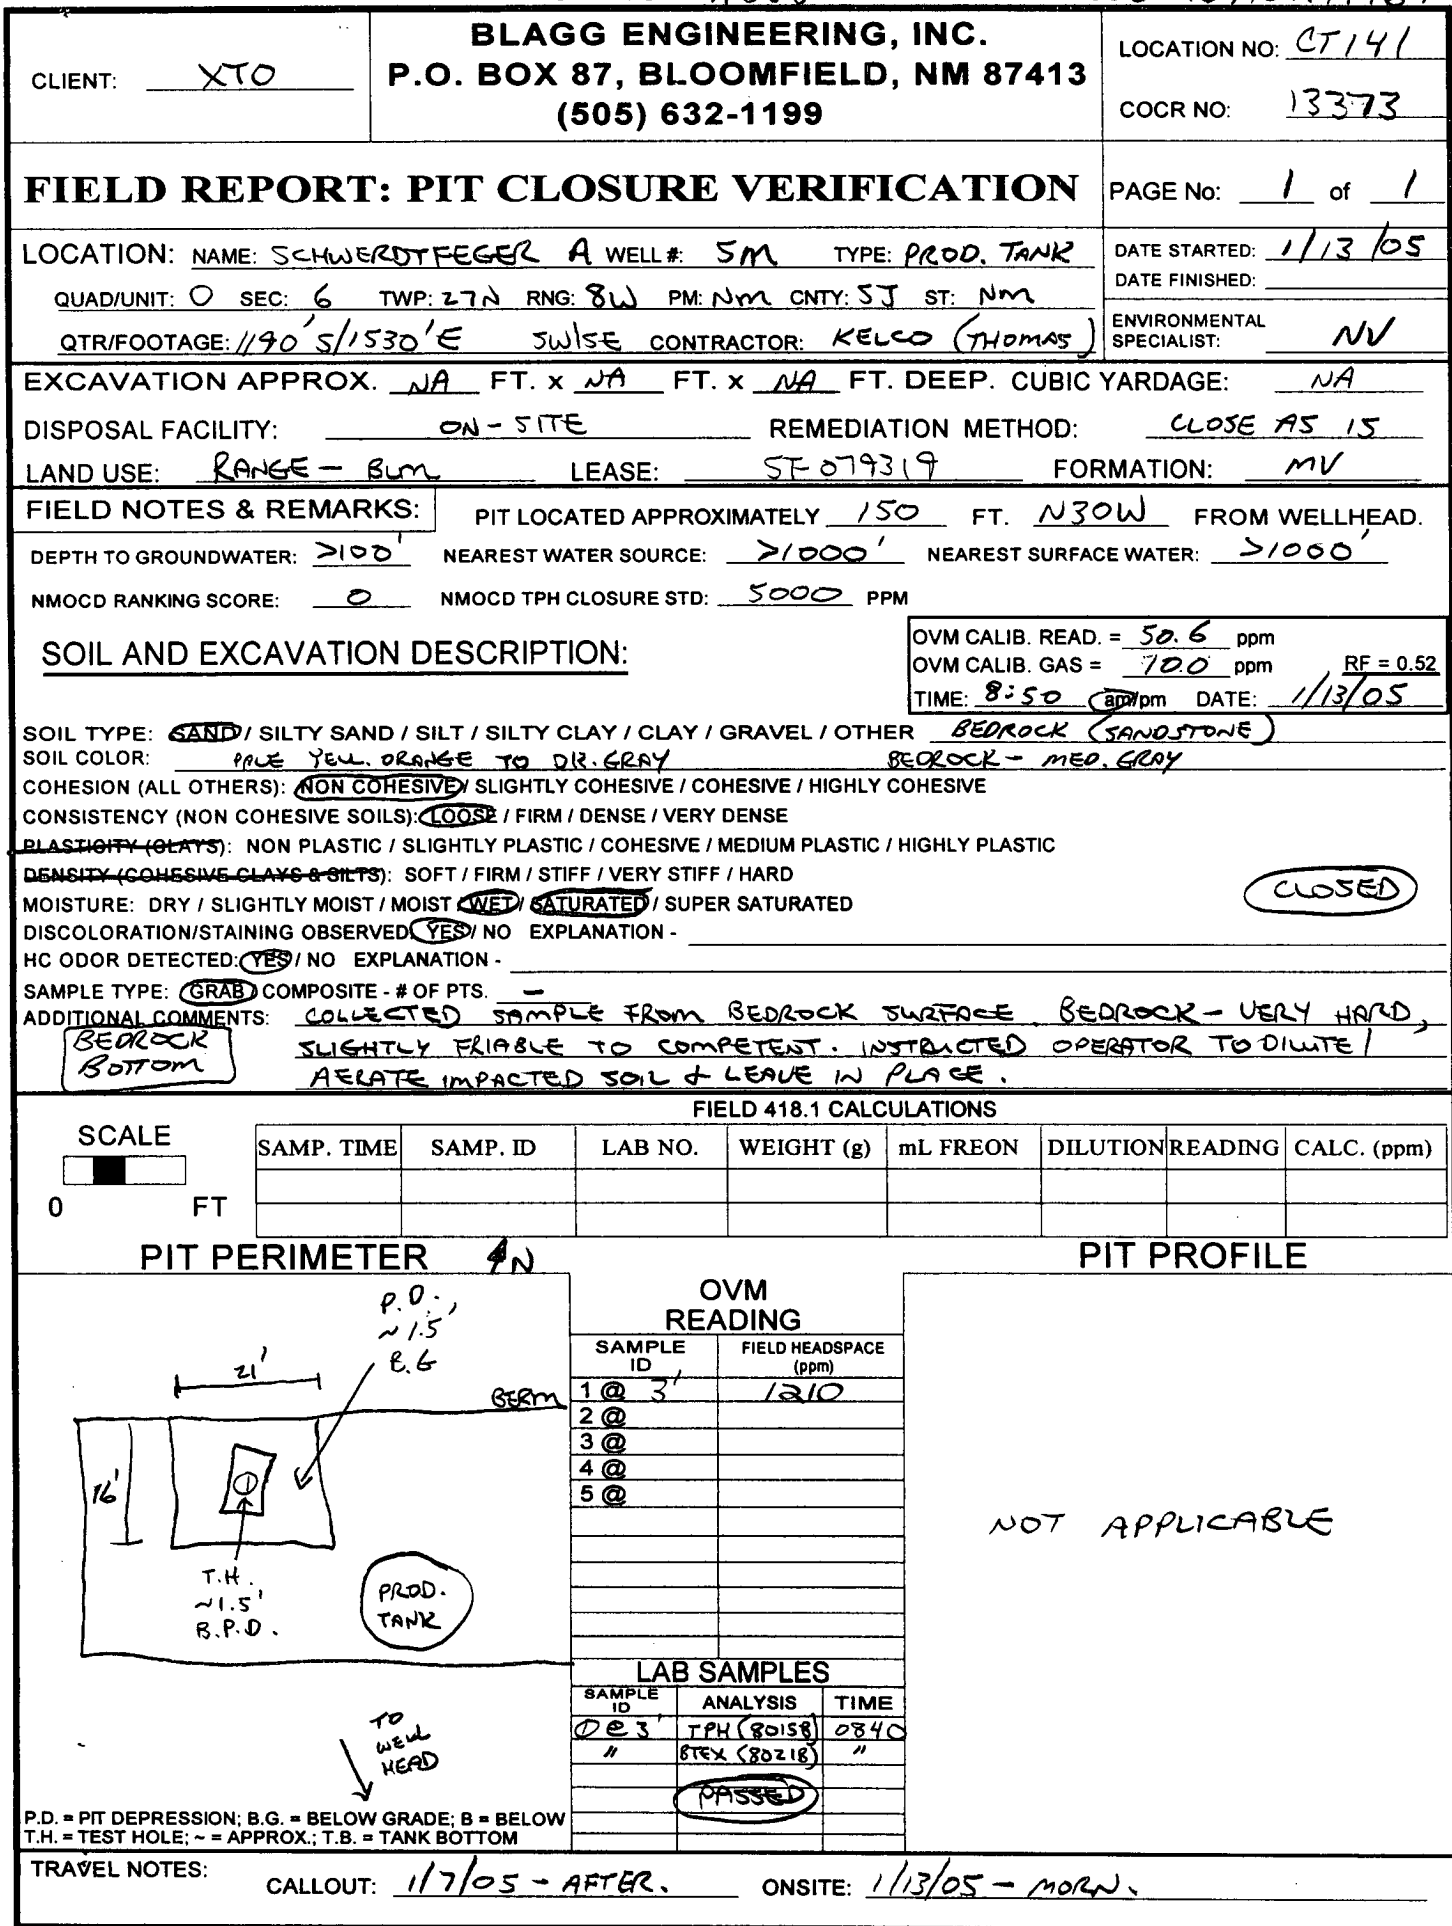 BLAGG ENGINEERING, INC.
P.O. BOX 87, BLOOMFIELD, NM 87413
(505) 632-1199
CLIENT: XTO
LOCATION NO: CT141
COCR NO: 13373
FIELD REPORT: PIT CLOSURE VERIFICATION
PAGE No: 1 of 1
LOCATION: NAME: SCHWERDTFEGER A WELL #: 5M TYPE: PROD. TANK
QUAD/UNIT: O SEC: 6 TWP: 27N RNG: 8W PM: NM CNTY: SJ ST: NM
QTR/FOOTAGE: 1190'S/1530'E SW/SE CONTRACTOR: KELCO (THOMAS)
DATE STARTED: 1/13/05
DATE FINISHED:
ENVIRONMENTAL SPECIALIST: NV
EXCAVATION APPROX. NA FT. x NA FT. x NA FT. DEEP. CUBIC YARDAGE: NA
DISPOSAL FACILITY: ON-SITE REMEDIATION METHOD: CLOSE AS IS
LAND USE: RANGE - BLM LEASE: SF 079319 FORMATION: MV
FIELD NOTES & REMARKS: PIT LOCATED APPROXIMATELY 150 FT. N30W FROM WELLHEAD.
DEPTH TO GROUNDWATER: >100' NEAREST WATER SOURCE: >1000' NEAREST SURFACE WATER: >1000'
NMOCD RANKING SCORE: 0 NMOCD TPH CLOSURE STD: 5000 PPM
SOIL AND EXCAVATION DESCRIPTION:
OVM CALIB. READ. = 50.6 ppm
OVM CALIB. GAS = 100 ppm RF = 0.52
TIME: 8:50 am/pm DATE: 1/13/05
SOIL TYPE: SAND / SILTY SAND / SILT / SILTY CLAY / CLAY / GRAVEL / OTHER BEDROCK (SANDSTONE)
SOIL COLOR: PALE YELL. ORANGE TO DK. GRAY BEDROCK - MED. GRAY
COHESION (ALL OTHERS): NON COHESIVE / SLIGHTLY COHESIVE / COHESIVE / HIGHLY COHESIVE
CONSISTENCY (NON COHESIVE SOILS): LOOSE / FIRM / DENSE / VERY DENSE
PLASTICITY (CLAYS): NON PLASTIC / SLIGHTLY PLASTIC / COHESIVE / MEDIUM PLASTIC / HIGHLY PLASTIC
DENSITY (COHESIVE CLAYS & SILTS): SOFT / FIRM / STIFF / VERY STIFF / HARD
MOISTURE: DRY / SLIGHTLY MOIST / MOIST / WET / SATURATED / SUPER SATURATED
CLOSED
DISCOLORATION/STAINING OBSERVED: YES / NO EXPLANATION -
HC ODOR DETECTED: YES / NO EXPLANATION -
SAMPLE TYPE: GRAB / COMPOSITE - # OF PTS. -
ADDITIONAL COMMENTS: COLLECTED SAMPLE FROM BEDROCK SURFACE. BEDROCK - VERY HARD,
SLIGHTLY FRIABLE TO COMPETENT. INSTRUCTED OPERATOR TO DILUTE/
AERATE IMPACTED SOIL & LEAVE IN PLACE.
BEDROCK
BOTTOM
FIELD 418.1 CALCULATIONS
SCALE
0 FT
SAMP. TIME SAMP. ID LAB NO. WEIGHT (g) mL FREON DILUTION READING CALC. (ppm)
PIT PERIMETER N
P.D.
~1.5'
B.G
21'
BERM
16'
1
T.H.
~1.5'
B.P.D.
PROD.
TANK
TO
WELL
HEAD
P.D. = PIT DEPRESSION; B.G. = BELOW GRADE; B = BELOW
T.H. = TEST HOLE; ~ = APPROX.; T.B. = TANK BOTTOM
OVM
READING
SAMPLE ID FIELD HEADSPACE (ppm)
1 @ 3' 1210
2 @
3 @
4 @
5 @
LAB SAMPLES
SAMPLE ID ANALYSIS TIME
1 @ 3' TPH (8015B) 0840
" BTEX (8021B) "
PASSED
PIT PROFILE
NOT APPLICABLE
TRAVEL NOTES: CALLOUT: 1/7/05 - AFTER. ONSITE: 1/13/05 - MORN.